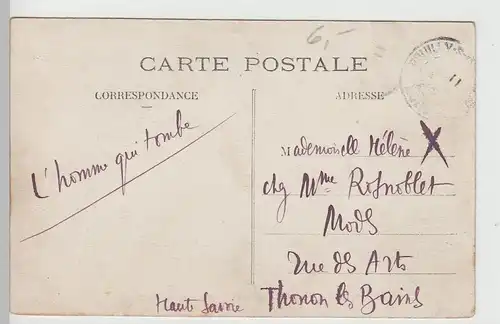 6,-
CARTE POSTALE
CORRESPONDANCE
ADRESSE
L'homme qui tombe
Mademoiselle Hélène X
chz Mme Rosnoblet
Mods
rue des Arts
Thonon les Bains
Haute Savoie